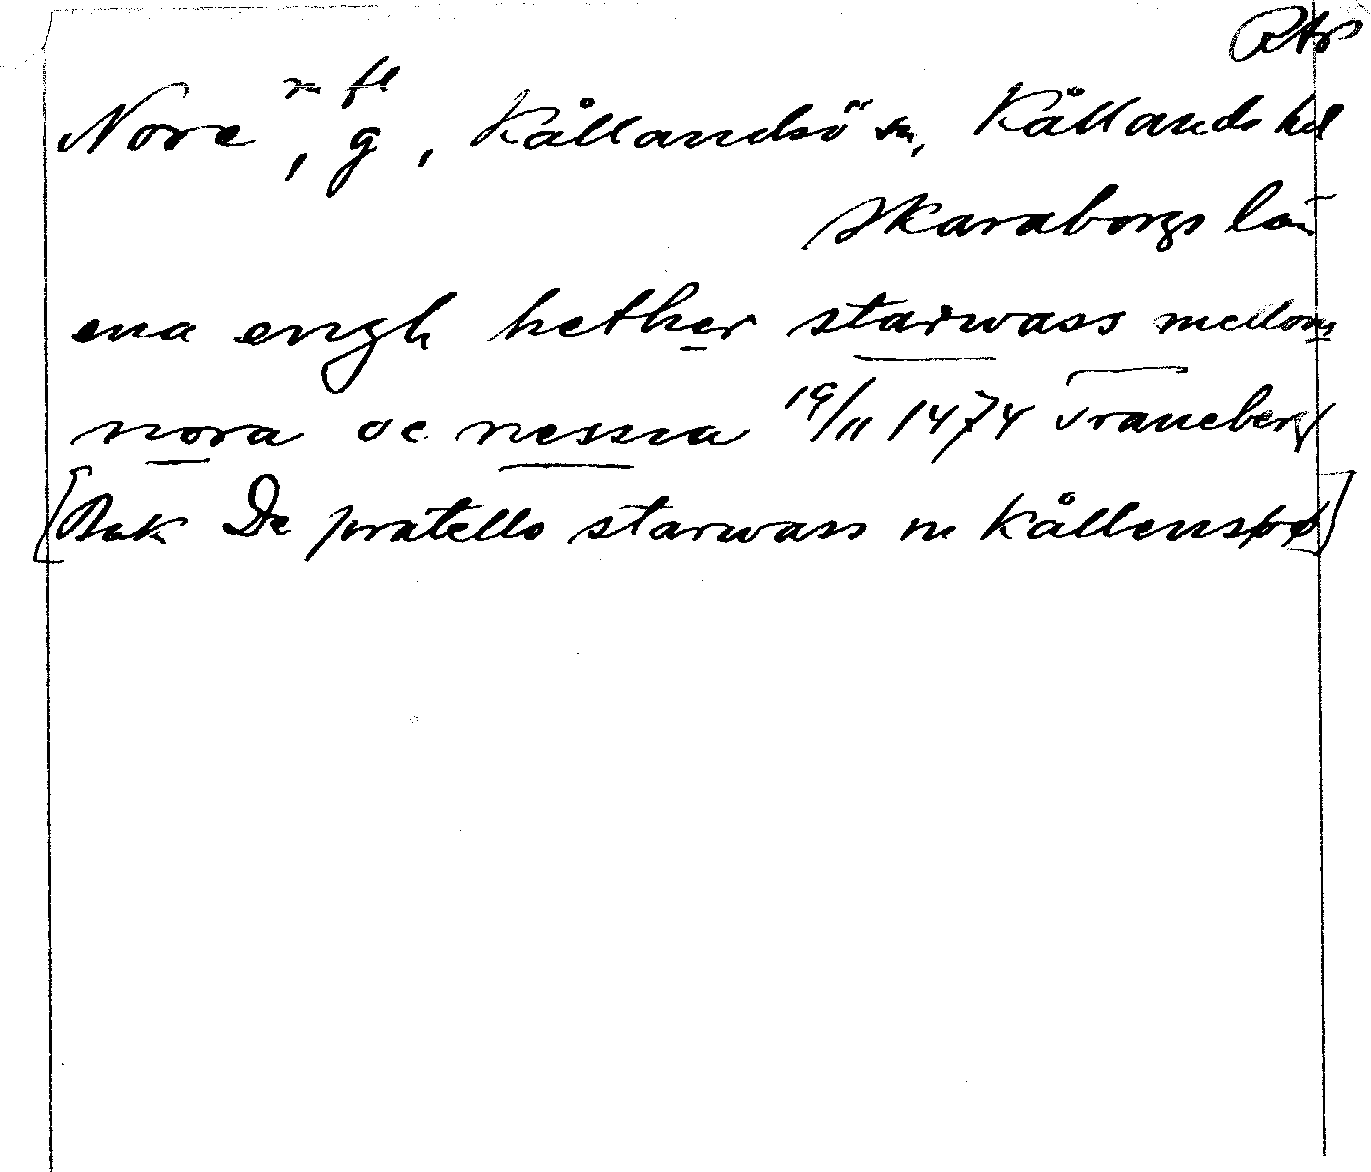 m fl
Nore, g, Kållandsö sn, Kållands hd
Skaraborgs län
ena engh hether starwass mellom
nora oc nessna 19/11 1474 Traneberg
[Bak De pratello starwass in Kållensøø]